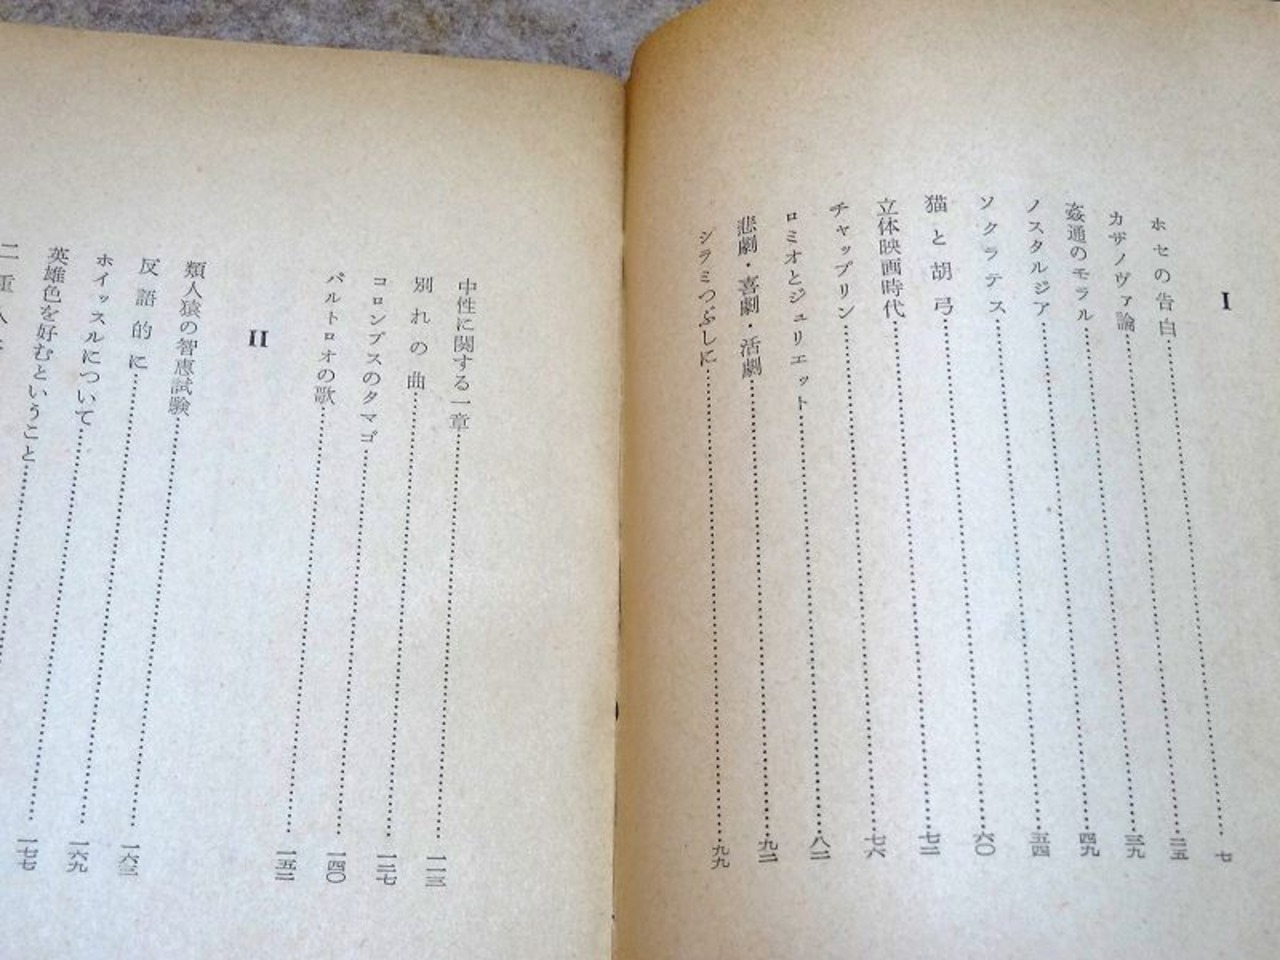 I
ホセの告白……七
カザノヴァ論……二五
姦通のモラル……三九
ノスタルジア……四九
ソクラテス……五四
猫と胡弓……六〇
立体映画時代……七二
チャップリン……七六
ロミオとジュリエット……八二
悲劇・喜劇・活劇……九二
シラミつぶしに……九九
中性に関する一章……一一三
別れの曲……一二七
コロンブスのタマゴ……一四〇
バルトロオの歌……一五二
II
類人猿の智恵試験……一六三
反語的に……一六九
ホイッスルについて……一七七
英雄色を好むということ……
二重人